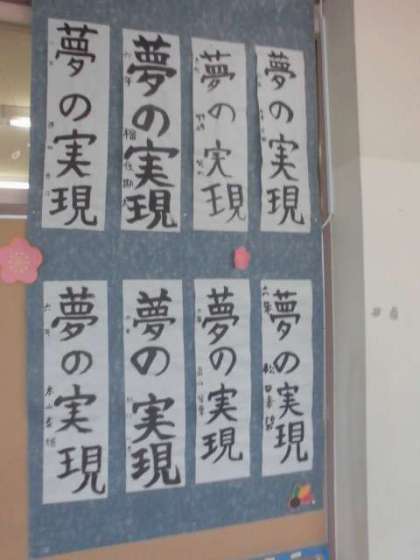 夢の実現
夢の実現
六年
夢の実現
夢の実現
六年
夢の実現
夢の実現
夢の実現
六年
夢の実現